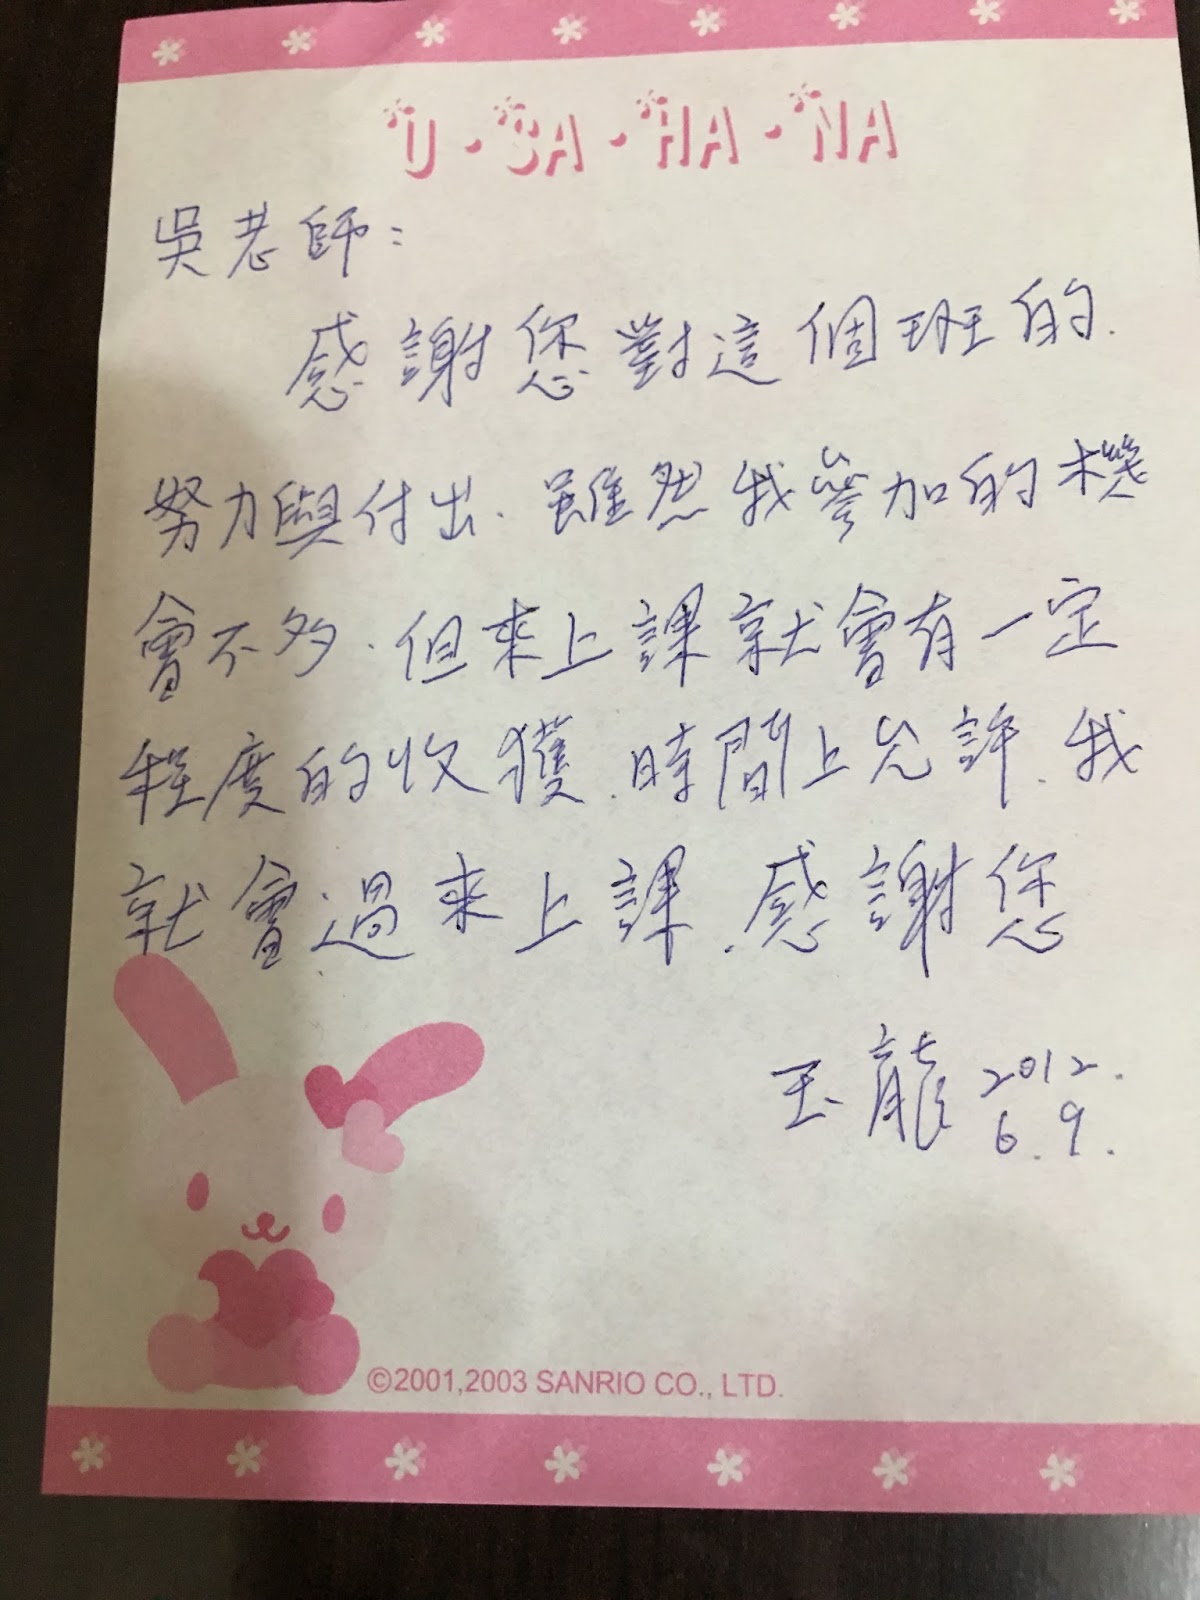 U·SA·HA·NA
吳老師：
感謝您對這個班的
努力與付出.雖然我參加的機
會不多.但來上課就會有一定
程度的收獲.時間上允許.我
就會過來上課.感謝您
玉龍 2012.
6.9.
©2001,2003 SANRIO CO., LTD.